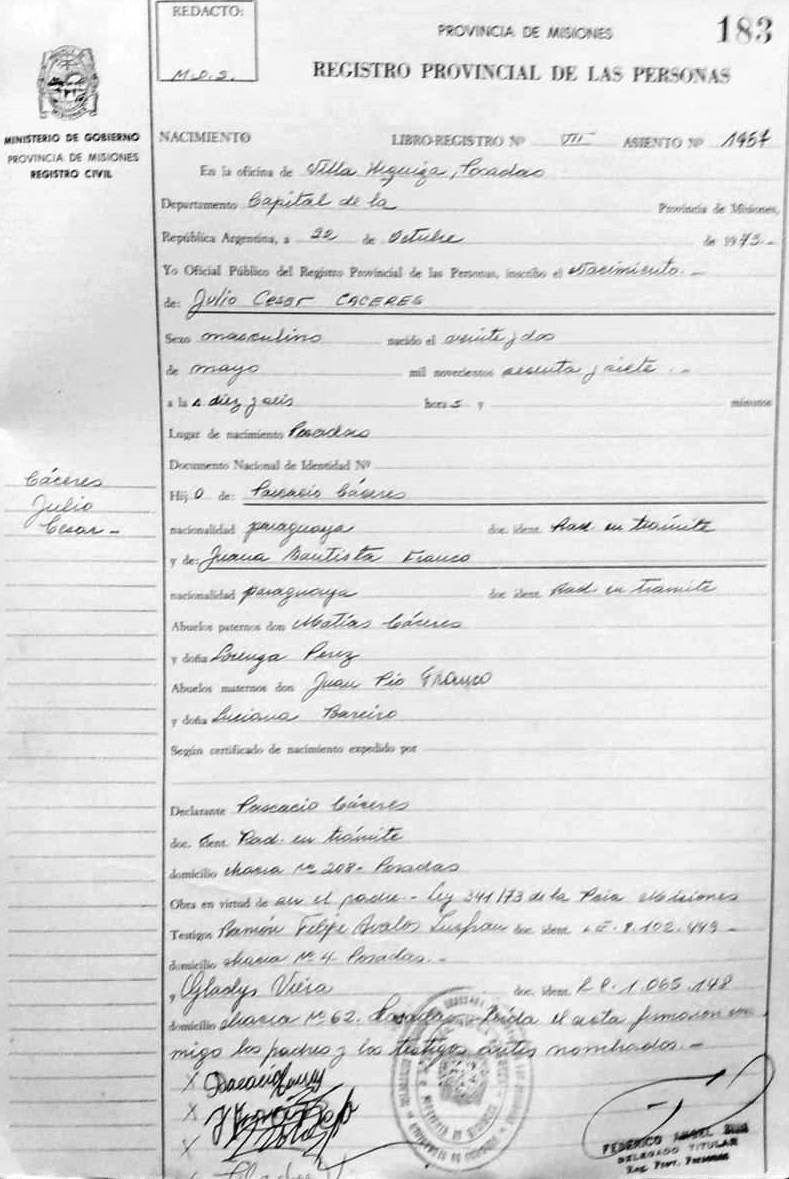 REDACTO:
M.D.S.
PROVINCIA DE MISIONES
183
REGISTRO PROVINCIAL DE LAS PERSONAS
MINISTERIO DE GOBIERNO
PROVINCIA DE MISIONES
REGISTRO CIVIL
NACIMIENTO LIBRO-REGISTRO Nº VII ASIENTO Nº 1957
En la oficina de Villa Urquiza, Posadas
Departamento Capital de la Provincia de Misiones,
República Argentina, a 22 de Octubre de 1973.-
Yo Oficial Público del Registro Provincial de las Personas, inscribo el Nacimiento.-
de: Julio Cesar CACERES
Sexo masculino nacido el veinte y dos
de mayo mil novecientos sesenta y siete.-
a la s diez y seis hora s y minutos
Lugar de nacimiento Posadas
Documento Nacional de Identidad Nº
Cáceres
Julio
Cesar-
Hij o de: Pascacio Cáceres
nacionalidad paraguaya doc. ident. Rad. en trámite
y de: Juana Bautista Franco
nacionalidad paraguaya doc. ident. Rad. en tramite
Abuelos paternos don Matías Cáceres
y doña Lorenza Perez
Abuelos maternos don Juan Pío Franco
y doña Luciana Bareiro
Según certificado de nacimiento expedido por
Declarante Pascacio Cáceres
doc. ident. Rad. en trámite
domicilio chacra Nº 208- Posadas
Obra en virtud de ser el padre- Ley 341/73 de la Pcia Misiones
Testigos Ramón Felipe Avalos doc. ident. L.E. 8.102.449-
domicilio chacra Nº 4 Posadas.-
y Gladys Viera doc. ident. 1.065.148
domicilio chacra Nº 62. Posadas- Leída el acta firmaron con
migo los padres y los testigos antes nombrados.-
FEDERICO ANGEL
DELEGADO TITULAR
Reg. Prov. Personas